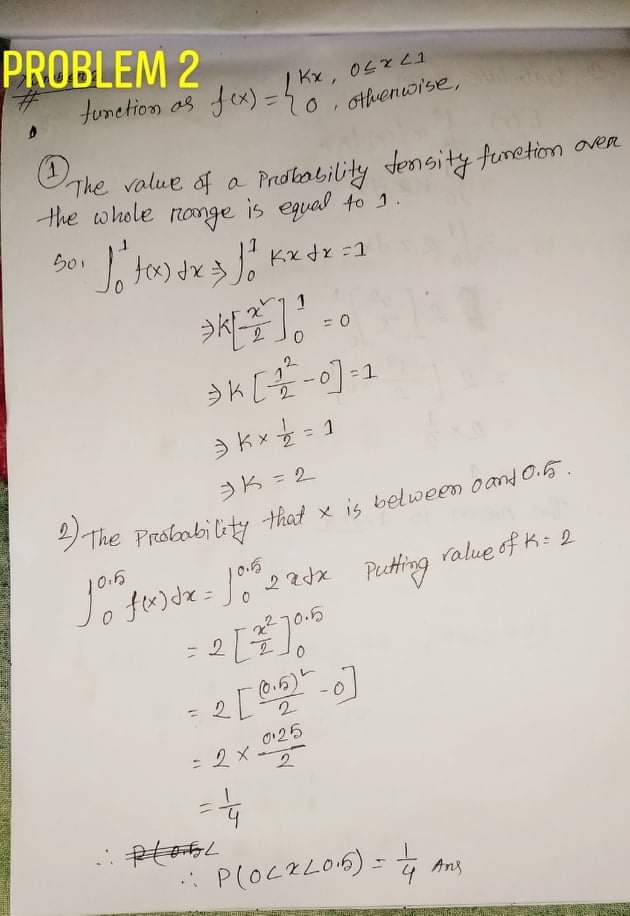 PROBLEM 2
# function as f(x) = { Kx, 0≤x<1
0, otherwise,
① The value of a Probability density function over
the whole range is equal to 1.
So, ∫₀¹ f(x) dx ⇒ ∫₀¹ Kx dx = 1
⇒ K[x²/2]₀¹ = 0
⇒ K[1²/2 - 0] = 1
⇒ K × 1/2 = 1
⇒ K = 2
2) The Probability that x is between 0 and 0.5.
∫₀^0.5 f(x) dx = ∫₀^0.5 2xdx Putting value of K = 2
= 2[x²/2]₀^0.5
= 2[(0.5)²/2 - 0]
= 2 × 0.25/2
= 1/4
∴ P(0.5<
∴ P(0<x<0.5) = 1/4 Ans